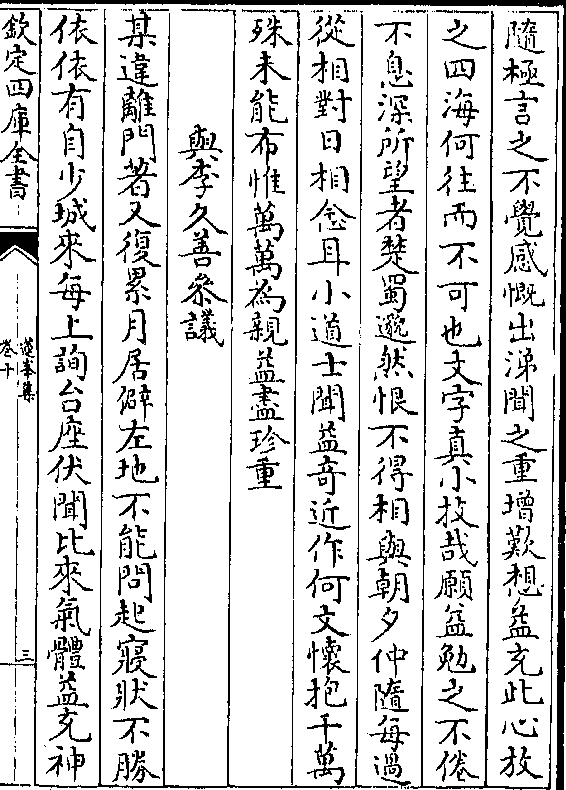 隨極言之不覺感慨出涕聞之重增歎想益充此心放
之四海何往而不可也文字真小技哉願益勉之不倦
不息深所望者楚蜀邈然恨不得相與朝夕仲隨每過
從相對日相念耳小道士聞益竒近作何文懷抱千萬
殊未能布惟萬萬為親益盡珍重
與李久善參議
某違離門著又復累月居僻左地不能問起寢狀不勝
依依有自少城來每上詢台座伏聞比來氣體益充神
欽定四庫全書
卷十
三